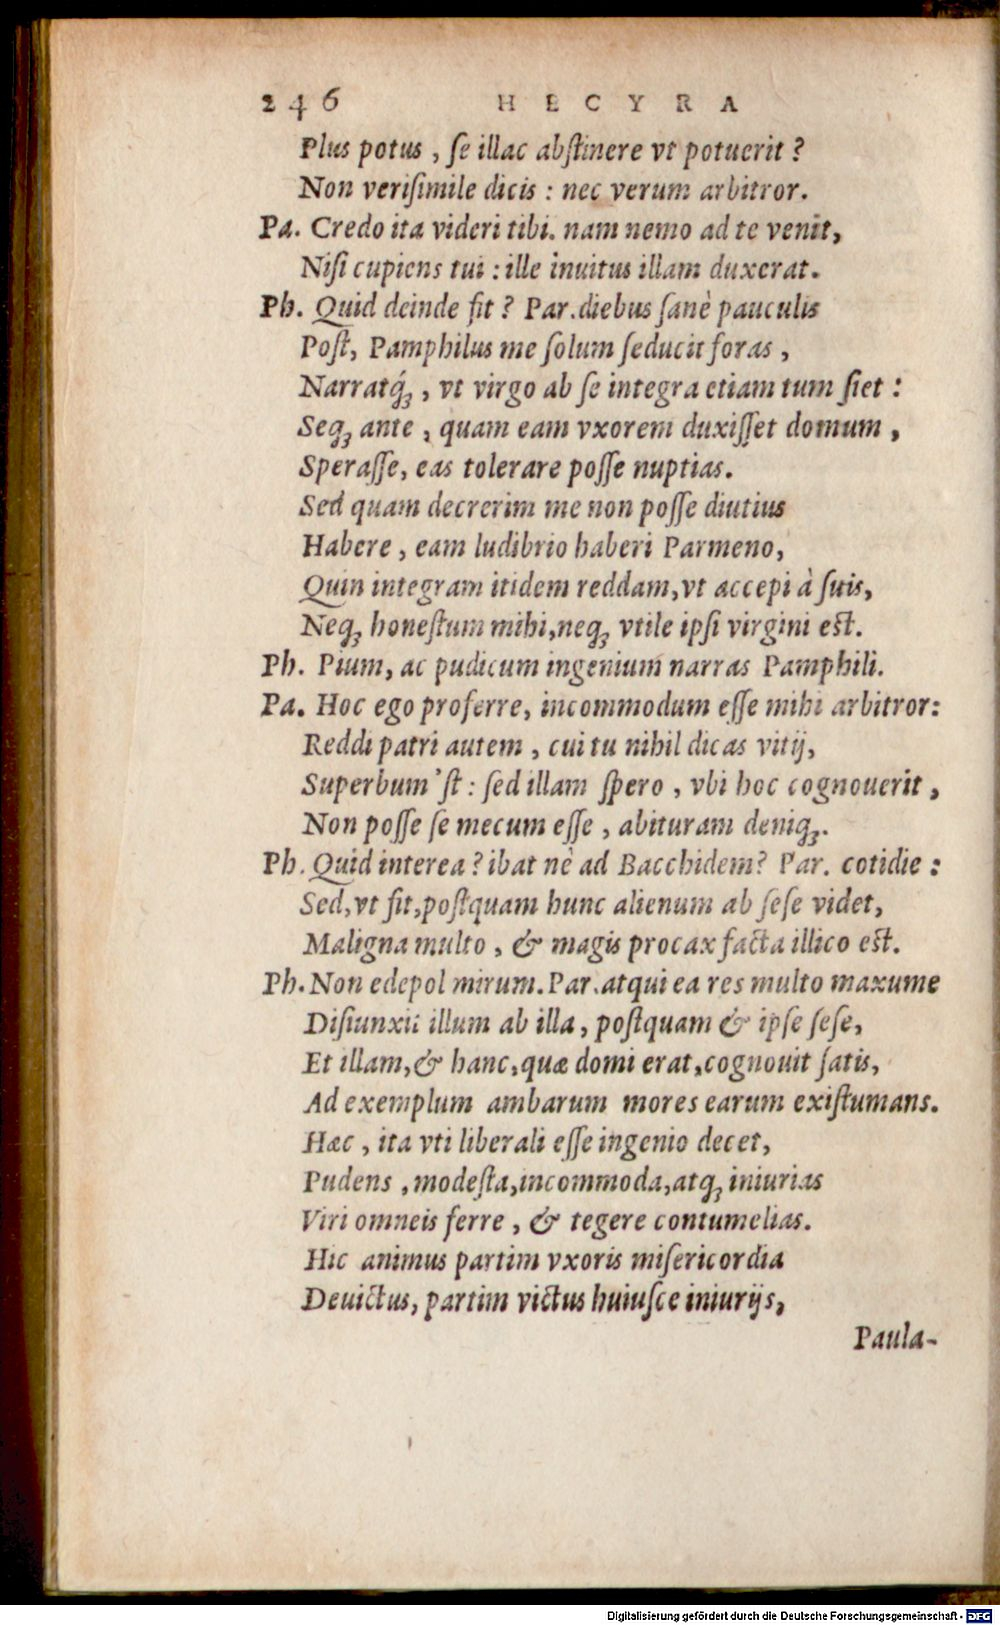 246 HECYRA
Plus potus, ſe illac abſtinere vt potuerit?
Non veriſimile dicis: nec verum arbitror.
Pa. Credo ita videri tibi. nam nemo ad te venit,
Niſi cupiens tui: ille inuitus illam duxerat.
Ph. Quid deinde fit? Par. diebus ſanè pauculis
Poſt, Pamphilus me ſolum ſeducit foras,
Narratq́ꝫ, vt virgo ab ſe integra etiam tum ſiet:
Seqꝫ ante, quam eam vxorem duxiſſet domum,
Speraſſe, eas tolerare poſſe nuptias.
Sed quam decrerim me non poſſe diutius
Habere, eam ludibrio haberi Parmeno,
Quin integram itidem reddam, vt accepi à ſuis,
Neqꝫ honeſtum mihi, neqꝫ vtile ipſi virgini eſt.
Ph. Pium, ac pudicum ingenium narras Pamphili.
Pa. Hoc ego proferre, incommodum eſſe mihi arbitror:
Reddi patri autem, cui tu nihil dicas vitij,
Superbum'ſt: ſed illam ſpero, vbi hoc cognouerit,
Non poſſe ſe mecum eſſe, abituram deniqꝫ.
Ph. Quid interea? ibat nè ad Bacchidem? Par. cotidie:
Sed, vt fit, poſtquam hunc alienum ab ſeſe videt,
Maligna multo, & magis procax facta illico eſt.
Ph. Non edepol mirum. Par. atqui ea res multo maxume
Diſiunxit illum ab illa, poſtquam & ipſe ſeſe,
Et illam, & hanc, quæ domi erat, cognouit ſatis,
Ad exemplum ambarum mores earum exiſtumans.
Hæc, ita vti liberali eſſe ingenio decet,
Pudens, modeſta, incommoda, atqꝫ iniurias
Viri omneis ferre, & tegere contumelias.
Hic animus partim vxoris miſericordia
Deuictus, partim victus huiuſce iniurijs,
Paula-
Digitalisierung gefördert durch die Deutsche Forschungsgemeinschaft - DFG